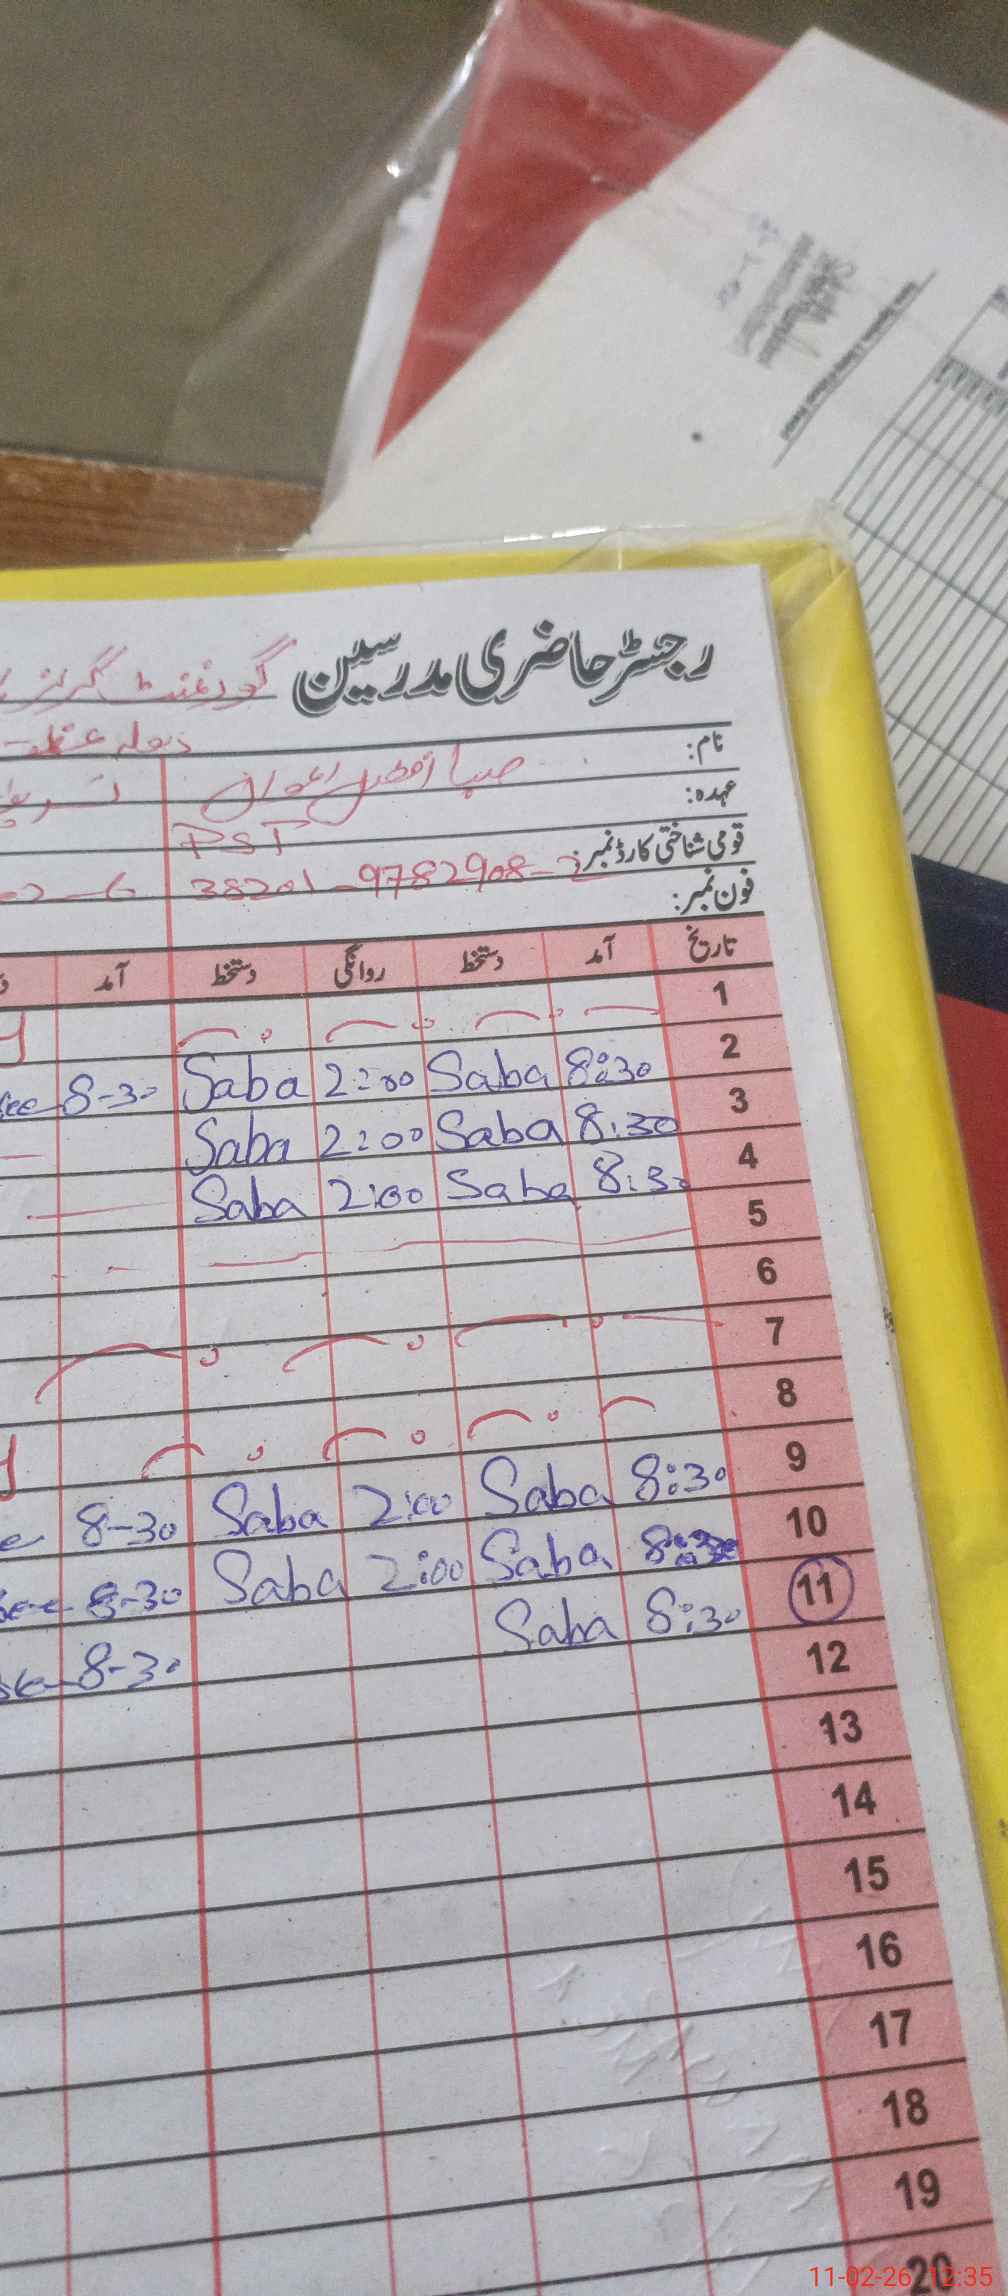 رجسٹر حاضری مدرسین گورنمنٹ گرلز
نام: صبا افضل اعوان
عہدہ: PST
قومی شناختی کارڈ نمبر: 38201-9782908-
فون نمبر:
تاریخ آمد دستخط روانگی دستخط آمد
1
2 8:30 Saba 2:00 Saba 8-30
3 8:30 Saba 2:00 Saba
4 8:30 Saba 2:00 Saba
5
6
7
8
9 8:30 Saba 2:00 Saba 8-30
10 8:30 Saba 2:00 Saba 8-30
11 8:30 Saba 8-30
12
13
14
15
16
17
18
19
20
11-02-26 12:35